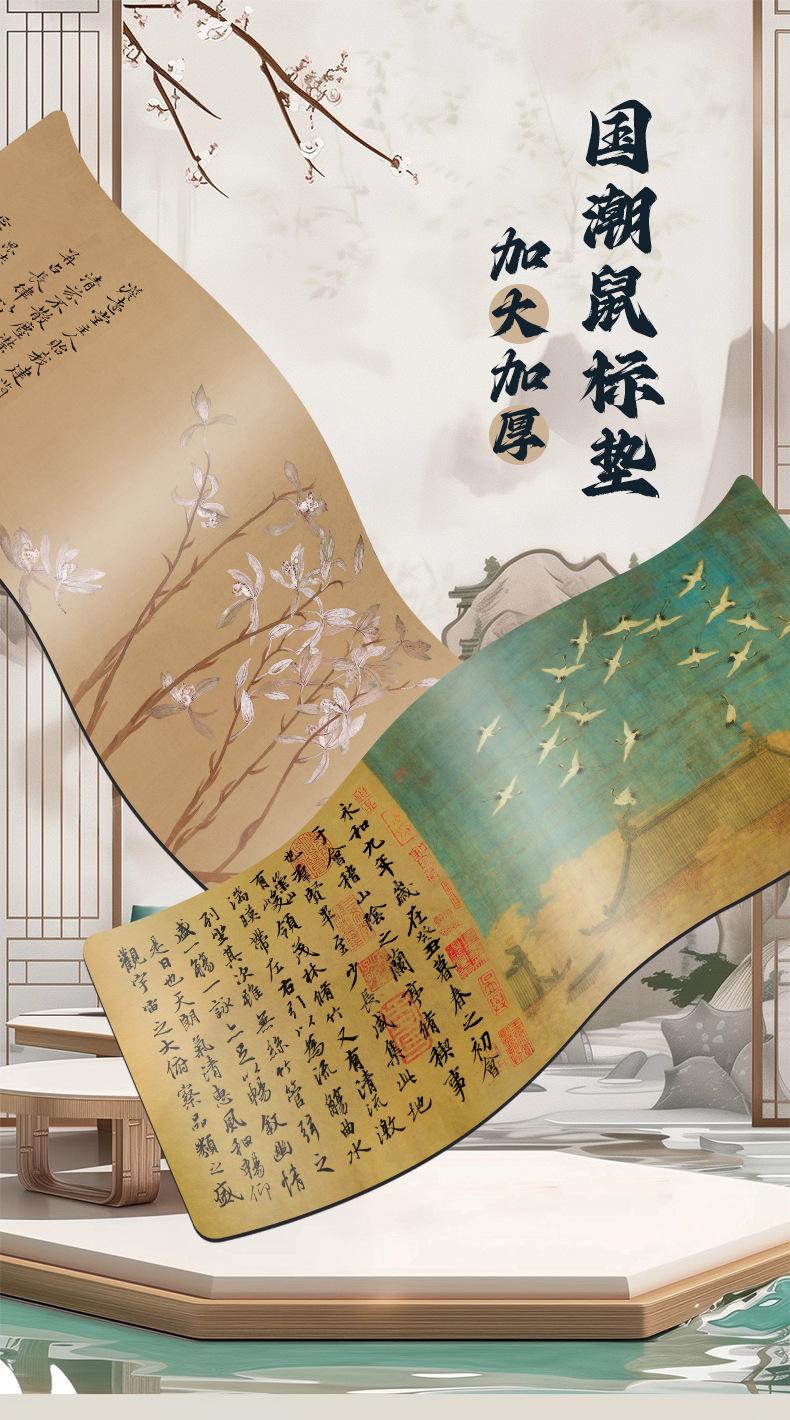 国潮鼠标垫
加大加厚
永和九年歲在癸丑暮春之初會
于會稽山陰之蘭亭脩稧事
也羣賢畢至少長咸集此地
有崇山峻領茂林脩竹又有清流激
湍暎帶左右引以為流觴曲水
列坐其次雖無絲竹管弦之
盛一觴一詠亦足以暢敘幽情
是日也天朗氣清惠風和暢仰
觀宇宙之大俯察品類之盛